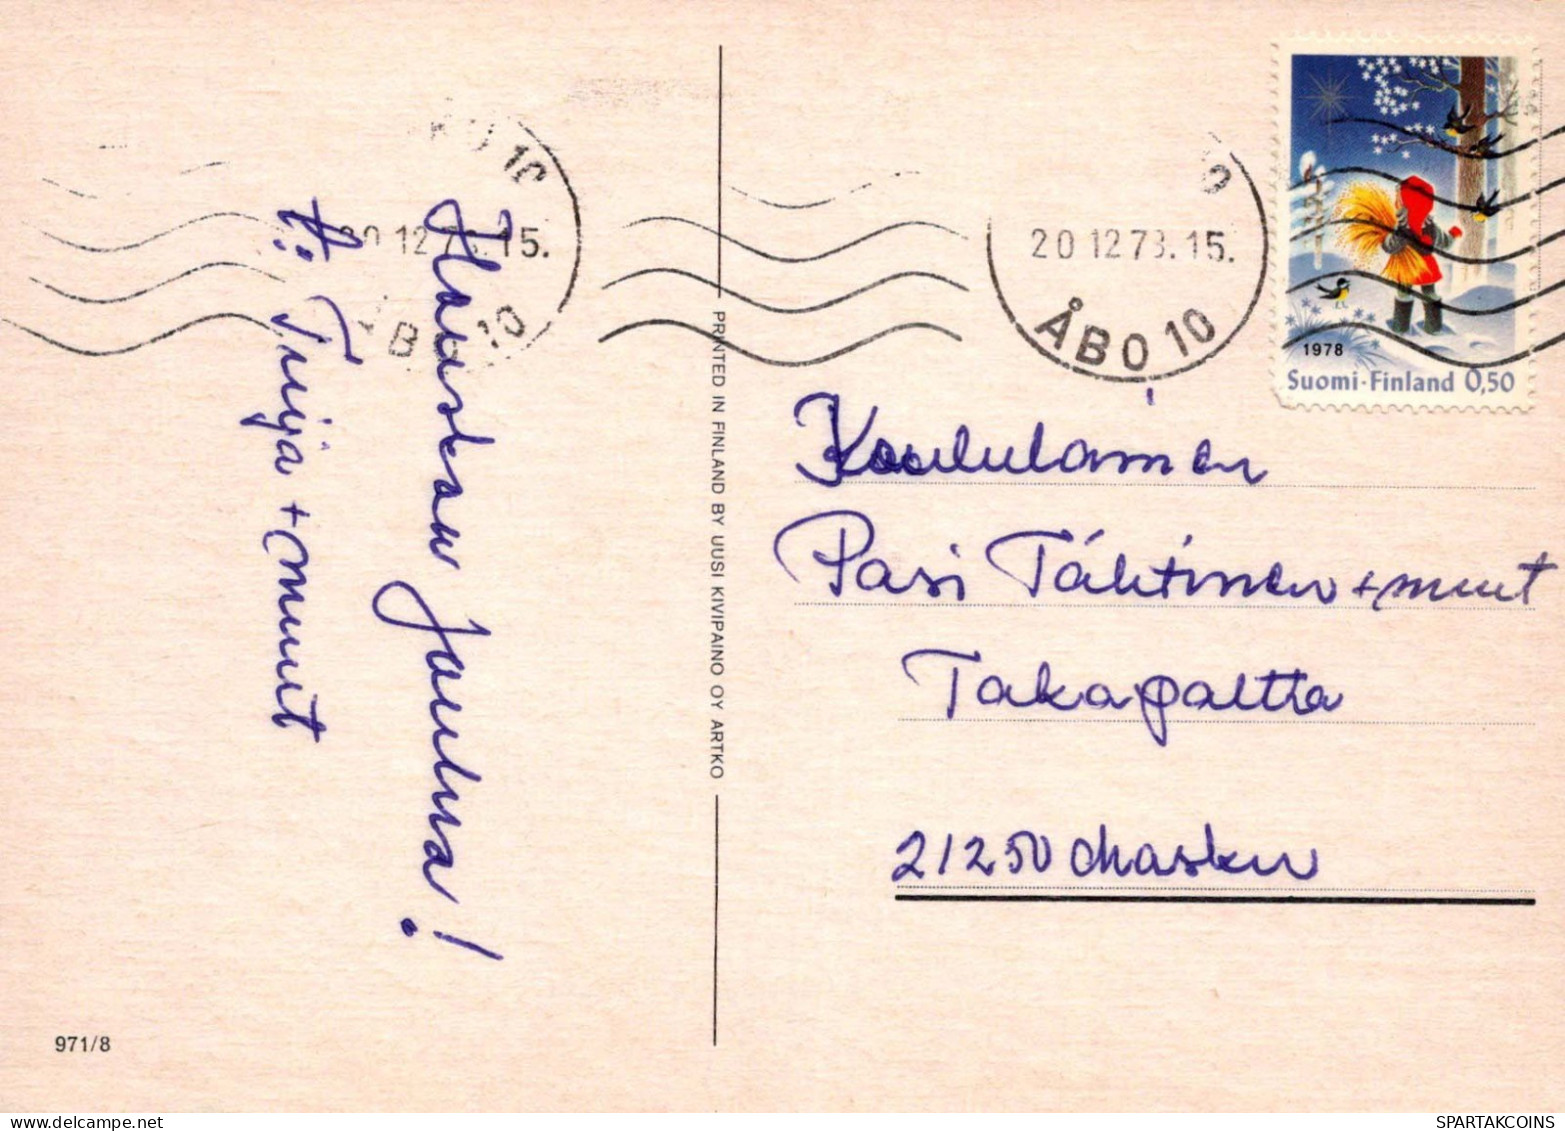 Hauskaa Joulua!
T: Tuija + muut
20.12.78.15.
ÅBO 10
20.12.78.15.
ÅBO 10
1978
Suomi-Finland 0,50
PRINTED IN FINLAND BY UUSI KIVIPAINO OY ARTKO
Koululainen
Pasi Tähtinen + muut
Takapaltta
21250 Masku
971/8
delcampe.net
SPARTAKCOINS